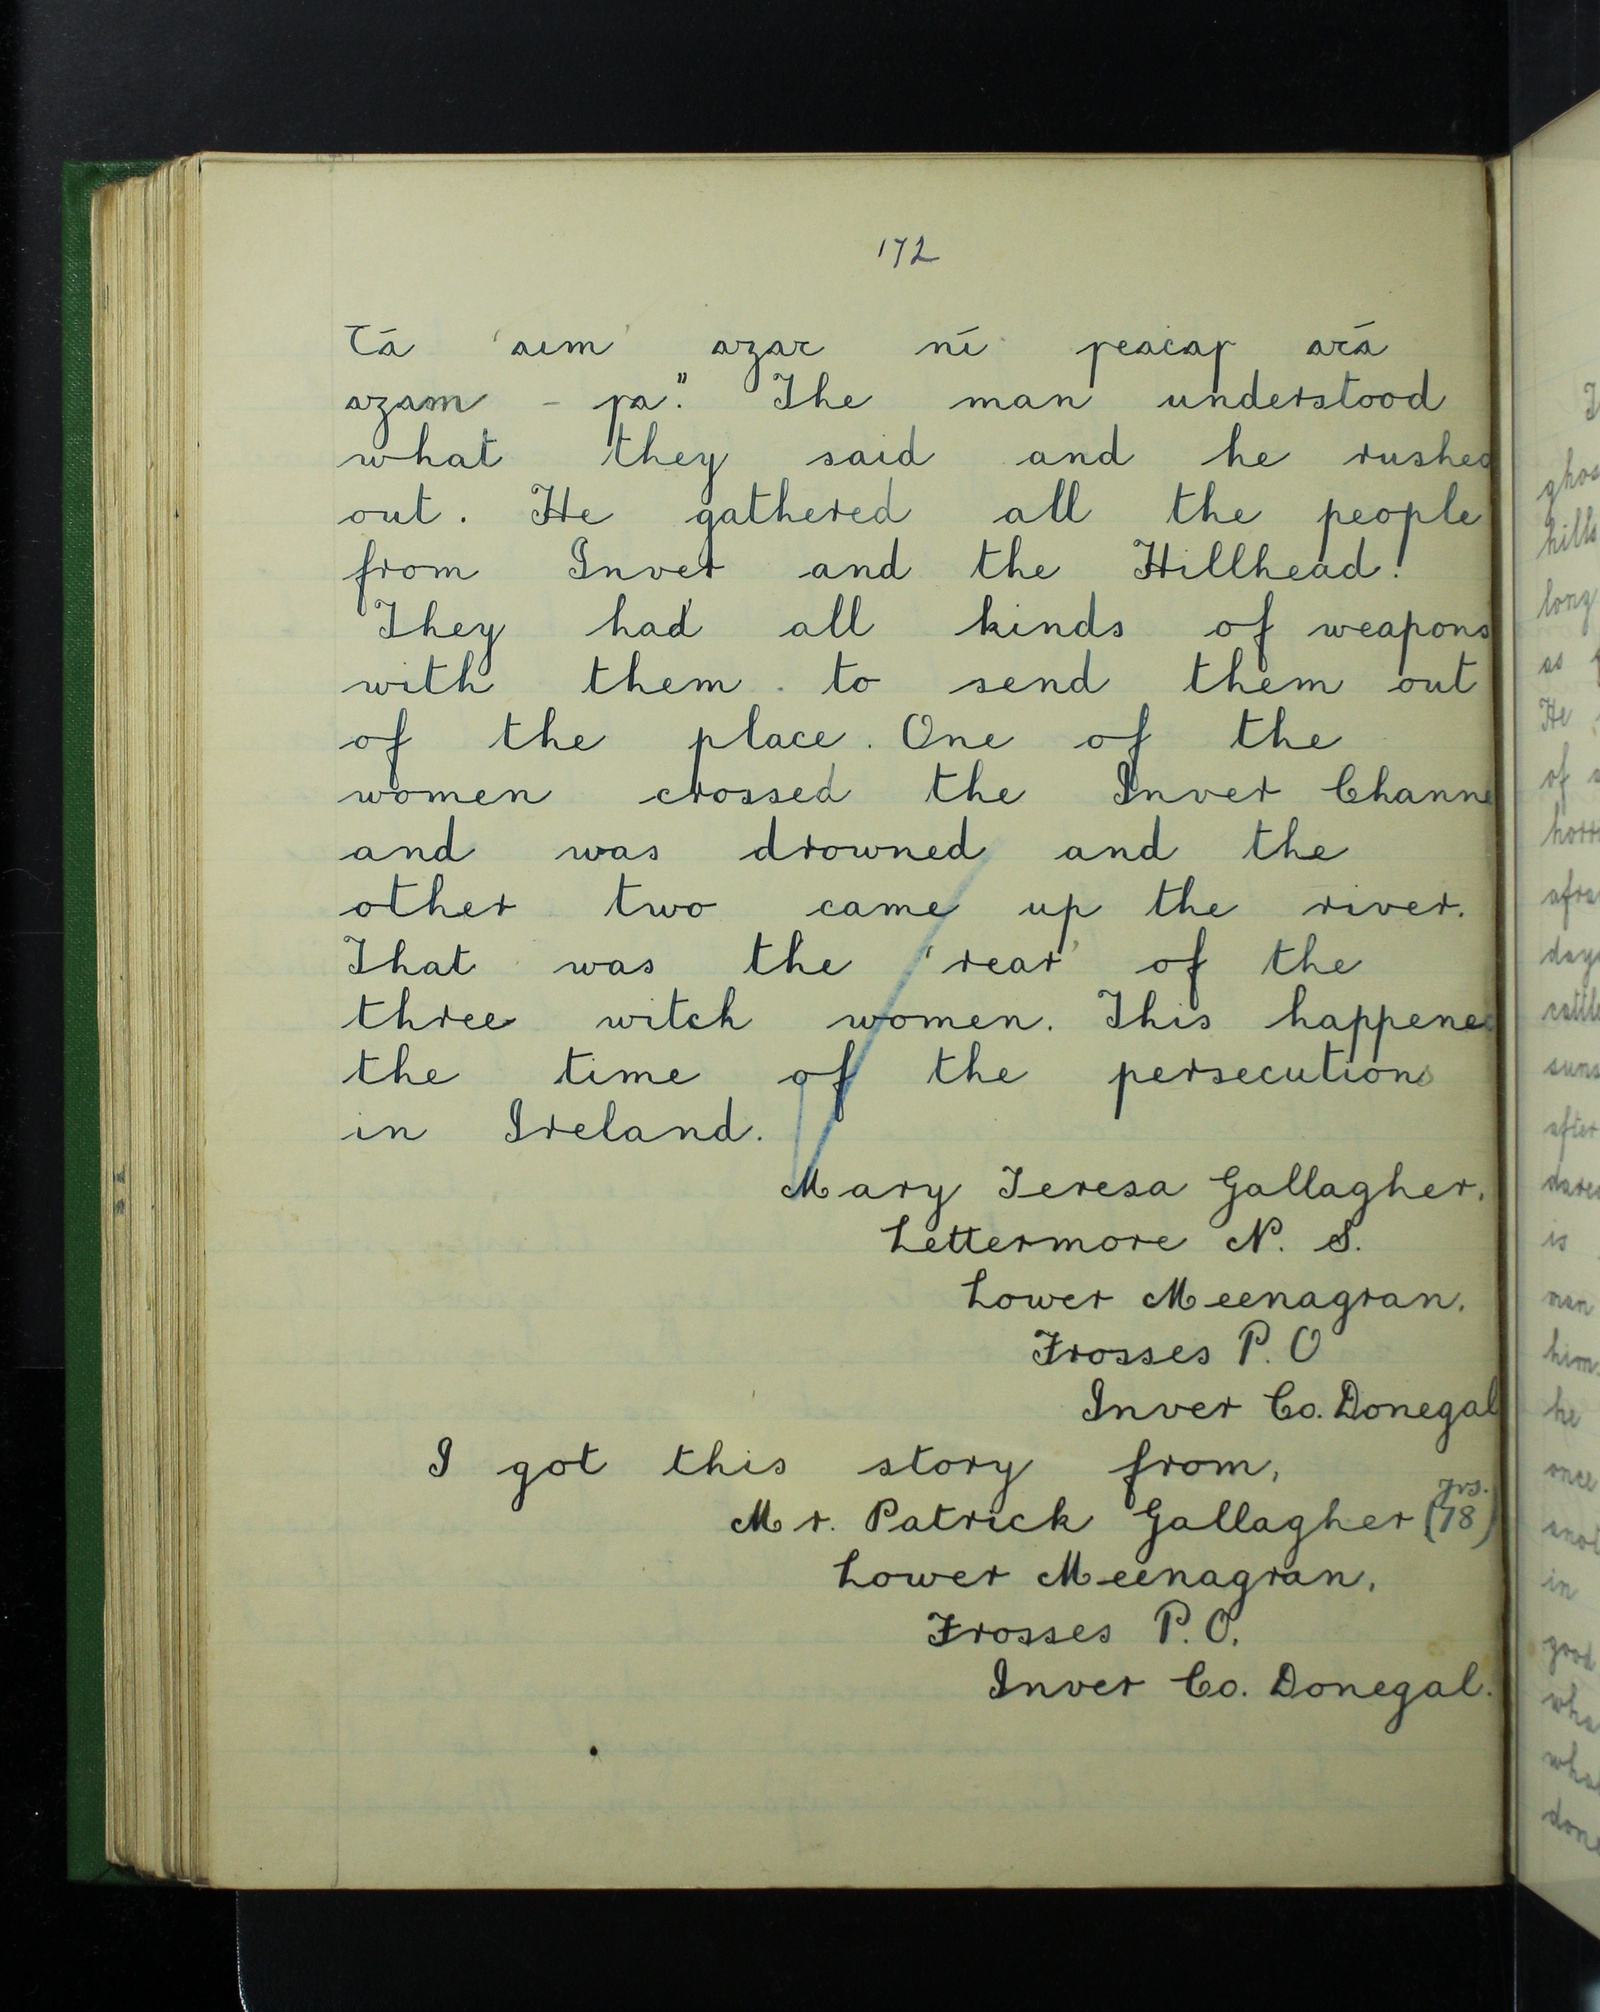 172
Tá 'aim' agat ní seaċas atá
agam - sa." The man understood
what they said and he rushed
out. He gathered all the people
from Inver and the Hillhead.
They had all kinds of weapons
with them to send them out
of the place. One of the
women crossed the Inver Channe
and was drowned and the
other two came up the river.
That was the 'rear' of the
three witch women. This happened
the time of the persecutions
in Ireland.
Mary Teresa Gallagher.
Lettermore N. S.
Lower Meenagran.
Frosses P. O
Inver Co. Donegal
I got this story from,
Mr. Patrick Gallagher (78 yrs.)
Lower Meenagran,
Frosses P. O.
Inver Co. Donegal.